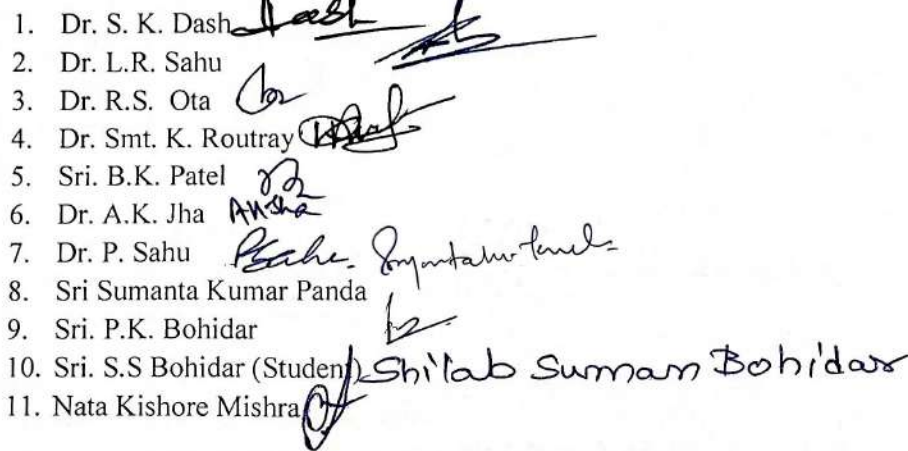 1. Dr. S. K. Dash Dash
2. Dr. L.R. Sahu
3. Dr. R.S. Ota
4. Dr. Smt. K. Routray
5. Sri. B.K. Patel
6. Dr. A.K. Jha AKJha
7. Dr. P. Sahu PSahu.
8. Sri Sumanta Kumar Panda
9. Sri. P.K. Bohidar
10. Sri. S.S Bohidar (Student) Shilab Suman Bohidar
11. Nata Kishore Mishra